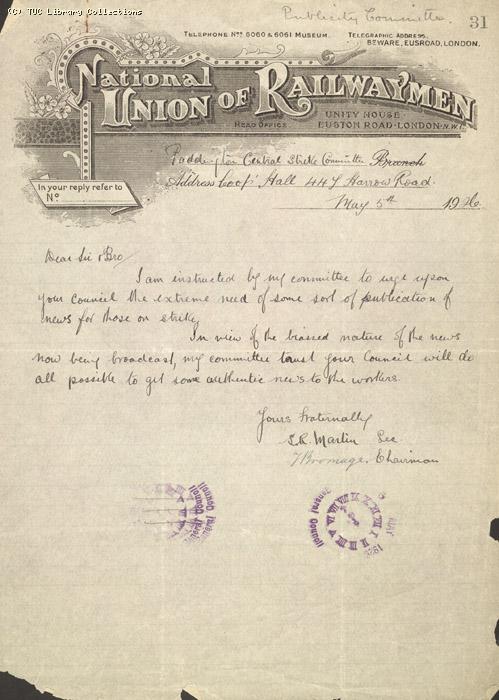 (C) TUC Library Collections
Publicity Committee.
31
TELEPHONE Nos 6060 & 6061 MUSEUM.
TELEGRAPHIC ADDRESS,
BEWARE, EUSROAD, LONDON.
National
UNION OF RAILWAYMEN
UNITY HOUSE
HEAD OFFICE
EUSTON ROAD·LONDON·N.W.1.
Paddington Central Strike Committee Branch
Address Coop' Hall 447 Harrow Road.
In your reply refer to
No.
May 5th 1926.
Dear Sir & Bro/
I am instructed by my committee to urge upon
your council the extreme need of some sort of publication of
news for those on strike,
In view of the biassed nature of the news
now being broadcast, my committee trust your Council will do
all possible to get some authentic news to the workers.
Yours fraternally
Martin Sec
Bromage. Chairman
General Council
General Council